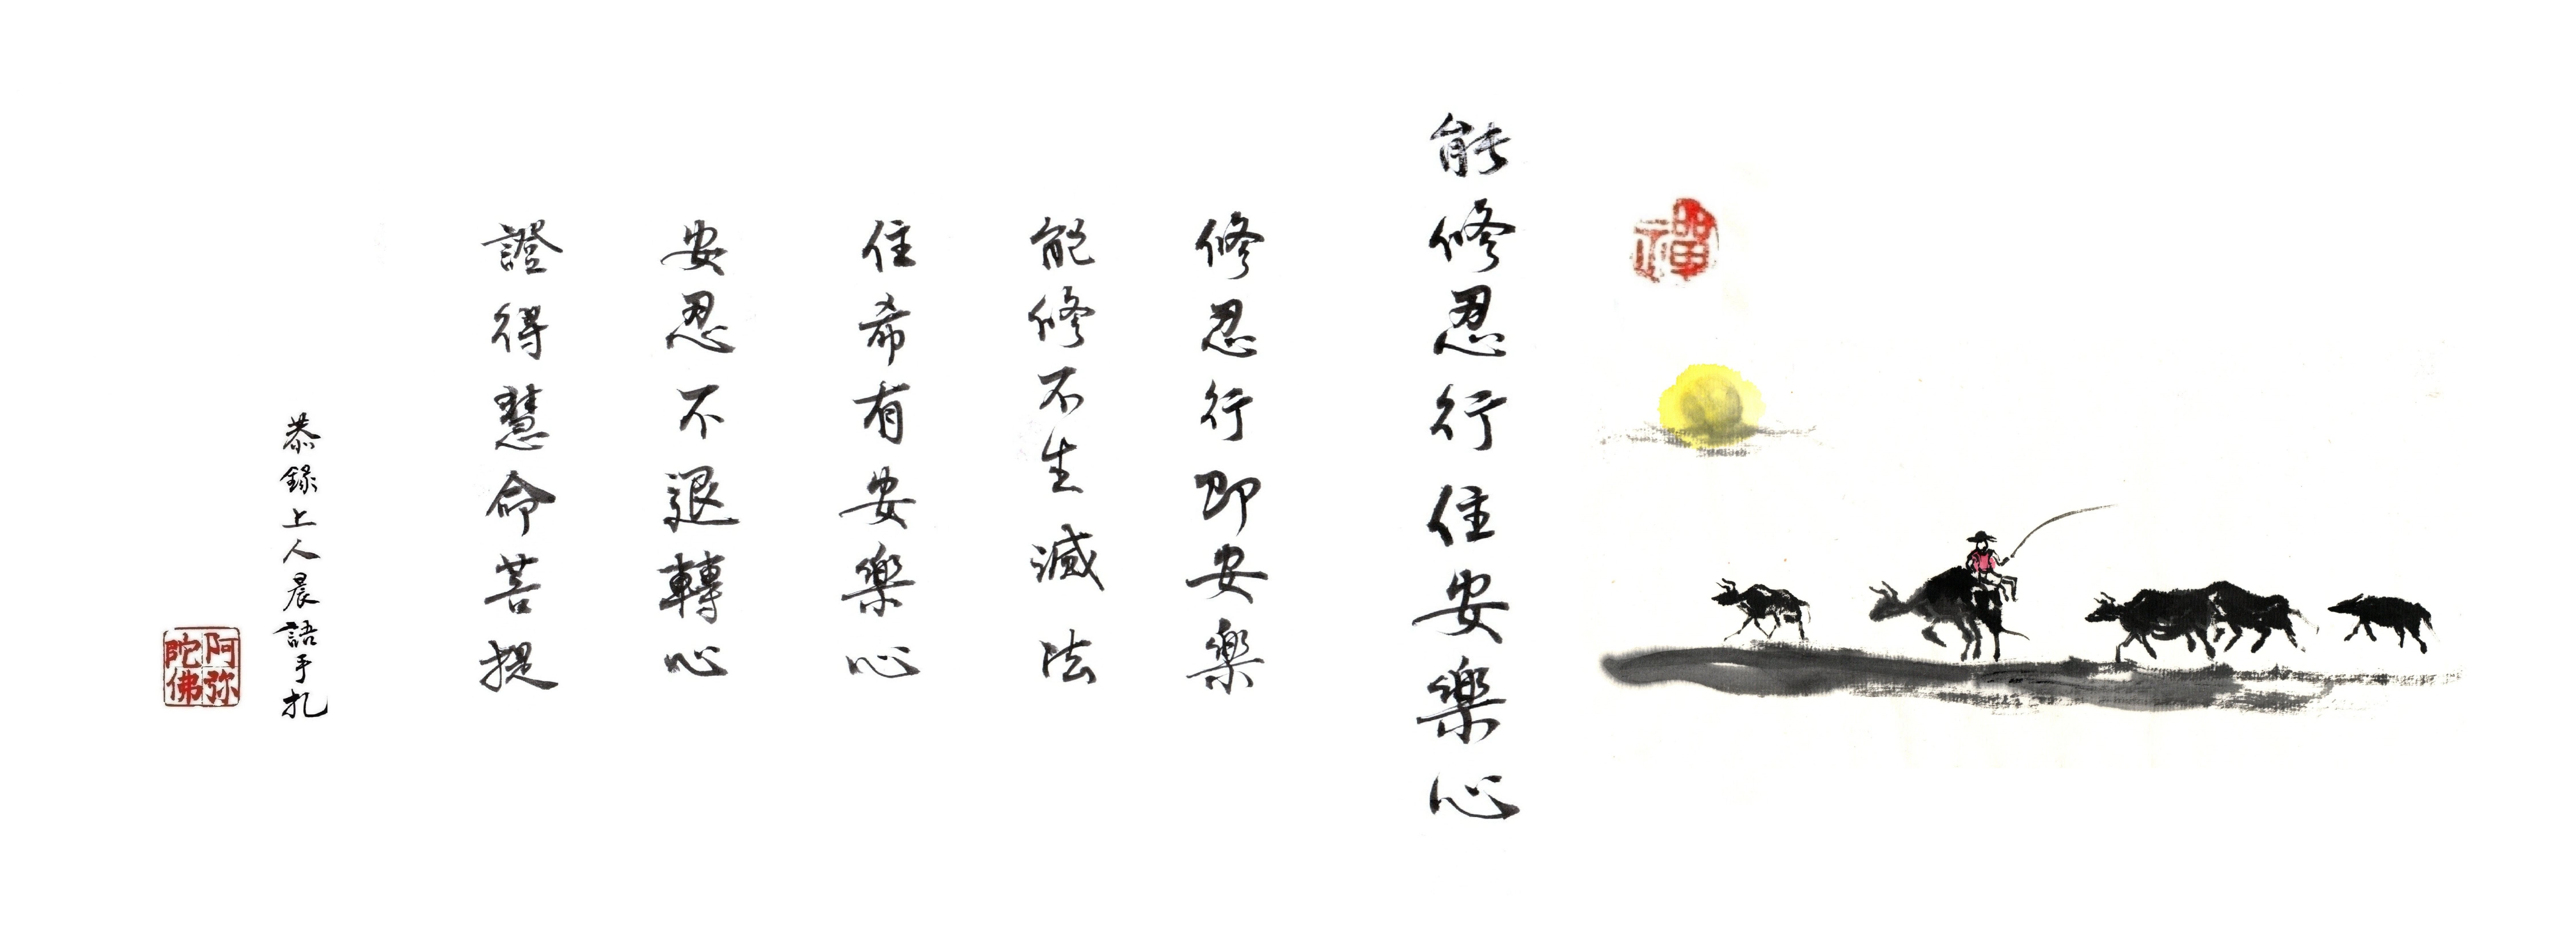 禪
能修忍行住安樂心
修忍行即安樂
能修不生滅法
住希有安樂心
安忍不退轉心
證得慧命菩提
恭錄上人晨語手扎
阿弥陀佛